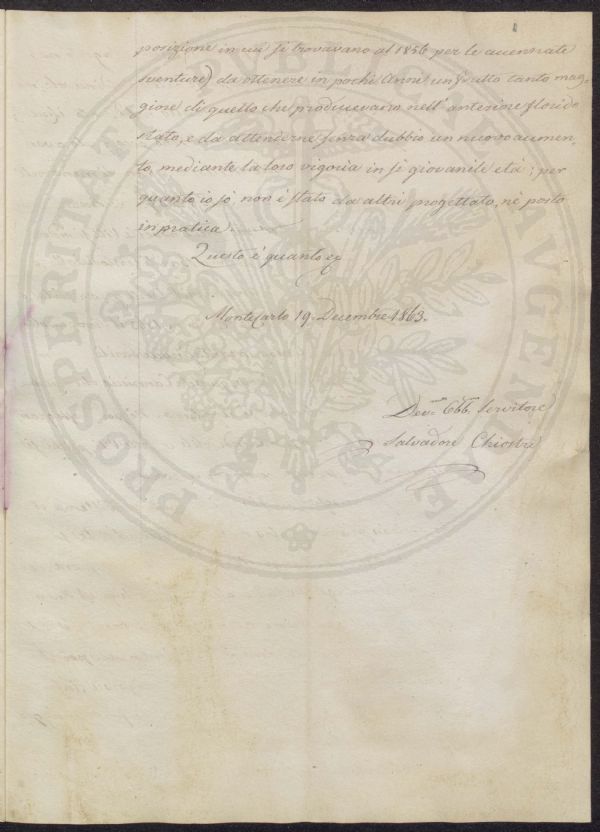 posizione in cui si trovavano al 1856 per le accennate
sventure) da ottenere in pochi Anni un frutto tanto mag-
giore di quello che producevano nell' anteriore florido
stato, e da attenderne senza dubbio un nuovo aumen-
to, mediante la loro vigoria in sì giovanile età; per
quanto io sò non è stato da altri progettato, nè posto
in pratica.
Questo è quanto
MonteCarlo 19. Decembre 1863.
Dev.mo Obb. Servitore
Salvadore Chiostri
PROSPERITATI PVBLICAE AVGENDAE